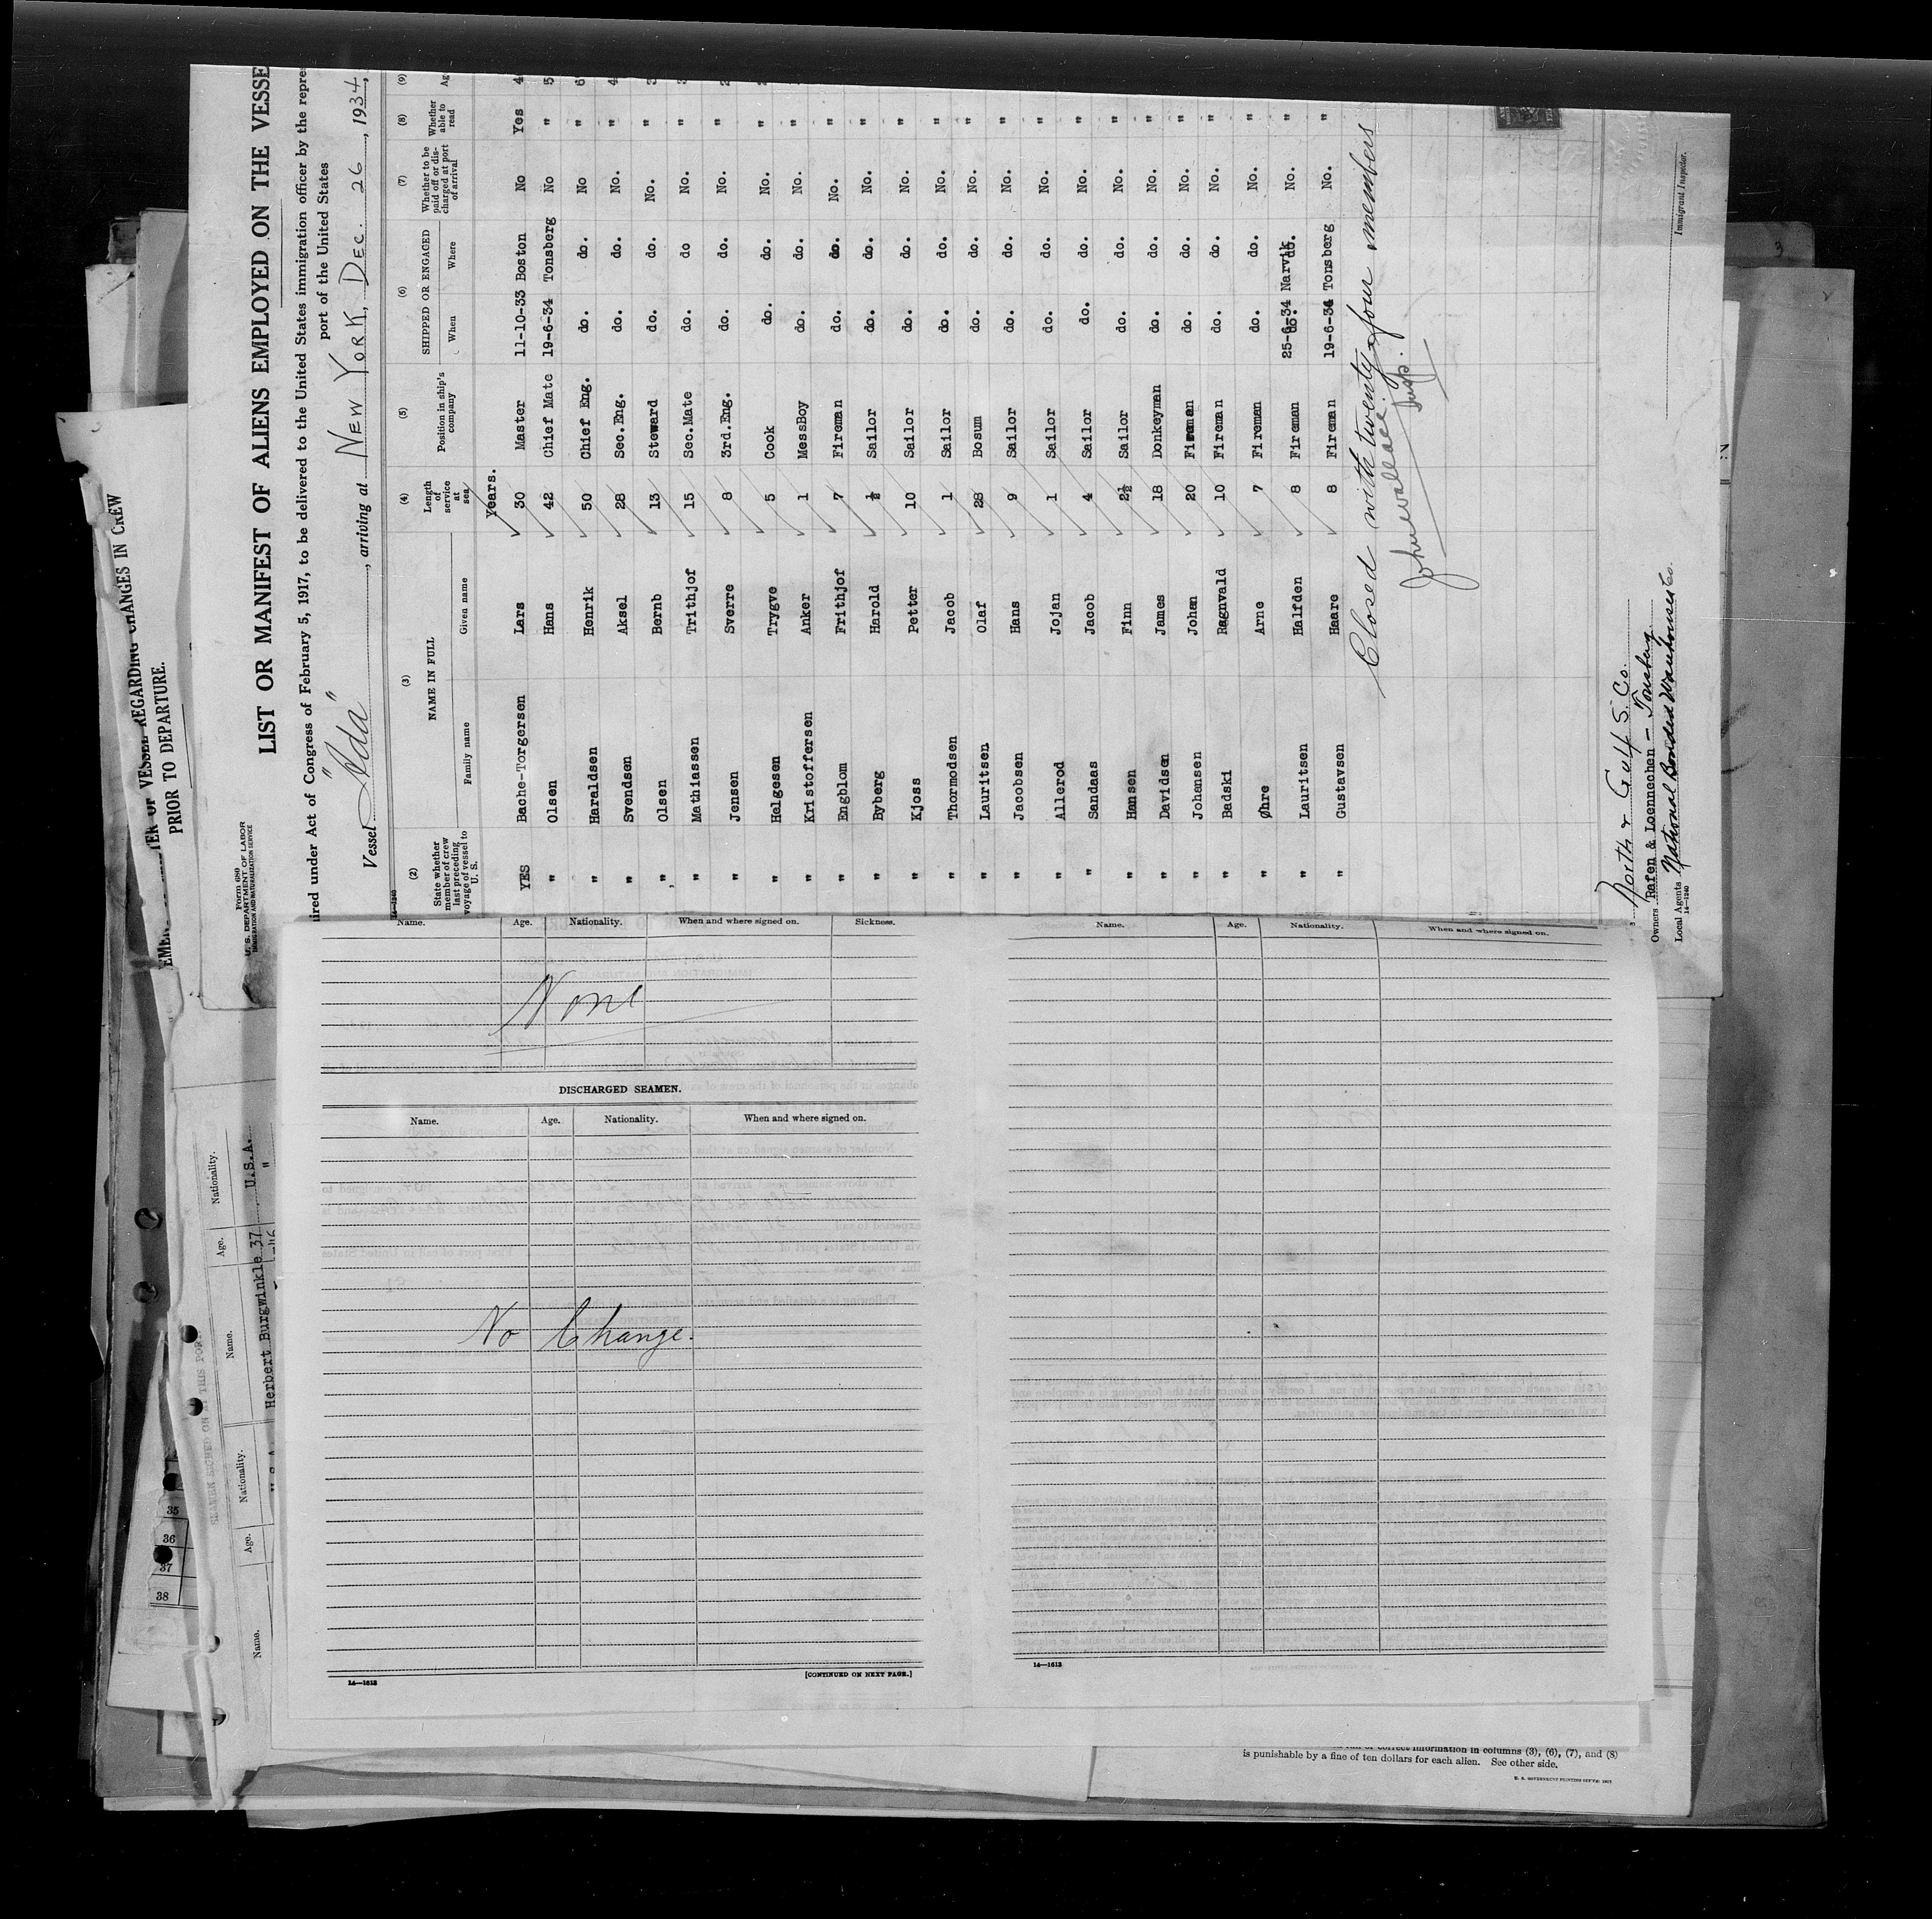 LIST OR MANIFEST OF ALIENS EMPLOYED ON THE VESSE
Form 680
U. S. DEPARTMENT OF LABOR
IMMIGRATION AND NATURALIZATION SERVICE
ired under Act of Congress of February 5, 1917, to be delivered to the United States immigration officer by the repre
port of the United States
Vessel "Ida", arriving at NEW YORK, DEC. 26, 1934,
14—1240
(2) (3) (4) (5) (6) (7) (8) (9)
State whether member of crew last preceding voyage of vessel to U. S.
NAME IN FULL
Family name Given name
Length of service at sea
Position in ship's company
SHIPPED OR ENGAGED
When Where
Whether to be paid off or discharged at port of arrival
Whether able to read
Ag
Years.
YES Bache-Torgersen Lars 30 Master 11-10-33 Boston No Yes 4
" Olsen Hans 42 Chief Mate 19-6-34 Tonsberg No " 5
" Haraldsen Henrik 50 Chief Eng. do. do. No " 6
" Svendsen Aksel 28 Sec.Eng. do. do. No. " 4
" Olsen Bernb 13 Steward do. do. No. " 3
" Mathiassen Trithjof 15 Sec.Mate do. do No. "
" Jensen Sverre 8 3rd.Eng. do. do. No. "
" Helgesen Trygve 5 Cook do. do. No. "
" Kristoffersen Anker 1 MessBoy do. do. No. "
" Engblom Frithjof 7 Fireman do. do. No. "
" Byberg Harold ½ Sailor do. do. No. "
" Kjoss Petter 10 Sailor do. do. No. "
" Thormodsen Jacob 1 Sailor do. do. No. "
" Lauritsen Olaf 28 Bosum do. do. No. "
" Jacobsen Hans 9 Sailor do. do. No. "
" Allerod Jojan 1 Sailor do. do. No. "
" Sandaas Jacob 4 Sailor do. do. No. "
" Hansen Finn 2½ Sailor do. do. No. "
" Davidsen James 18 Donkeyman do. do. No. "
" Johansen Johan 20 Fireman do. do. No. "
" Badski Ragnvald 10 Fireman do. do. No. "
" Øhre Arne 7 Fireman do. do. No. "
" Lauritsen Halfden 8 Fireman 25-6-34 Narvik No. "
" Gustavsen Haare 8 Fireman 19-6-34 Tonsberg No. "
Closed with twenty four members
John Wallace.
Insp.
Immigrant Inspector.
North & Gulf S. Co.
Owners Rafen & Loennechen - Tonsberg
Local Agents National Bonded Warehouses Co.
14—1240
REGARDING CHANGES IN CREW
PRIOR TO DEPARTURE.
Name. Age. Nationality.
Herbert Burgwinkle 37 U.S.A.
"
Name. Age. Nationality.
35
36
37
38
Name. Age. Nationality. When and where signed on. Sickness.
None
DISCHARGED SEAMEN.
Name. Age. Nationality. When and where signed on.
No Change.
14—1613
[CONTINUED ON NEXT PAGE.]
Name. Age. Nationality. When and where signed on.
14—1613
correct information in columns (3), (6), (7), and (8)
is punishable by a fine of ten dollars for each alien. See other side.